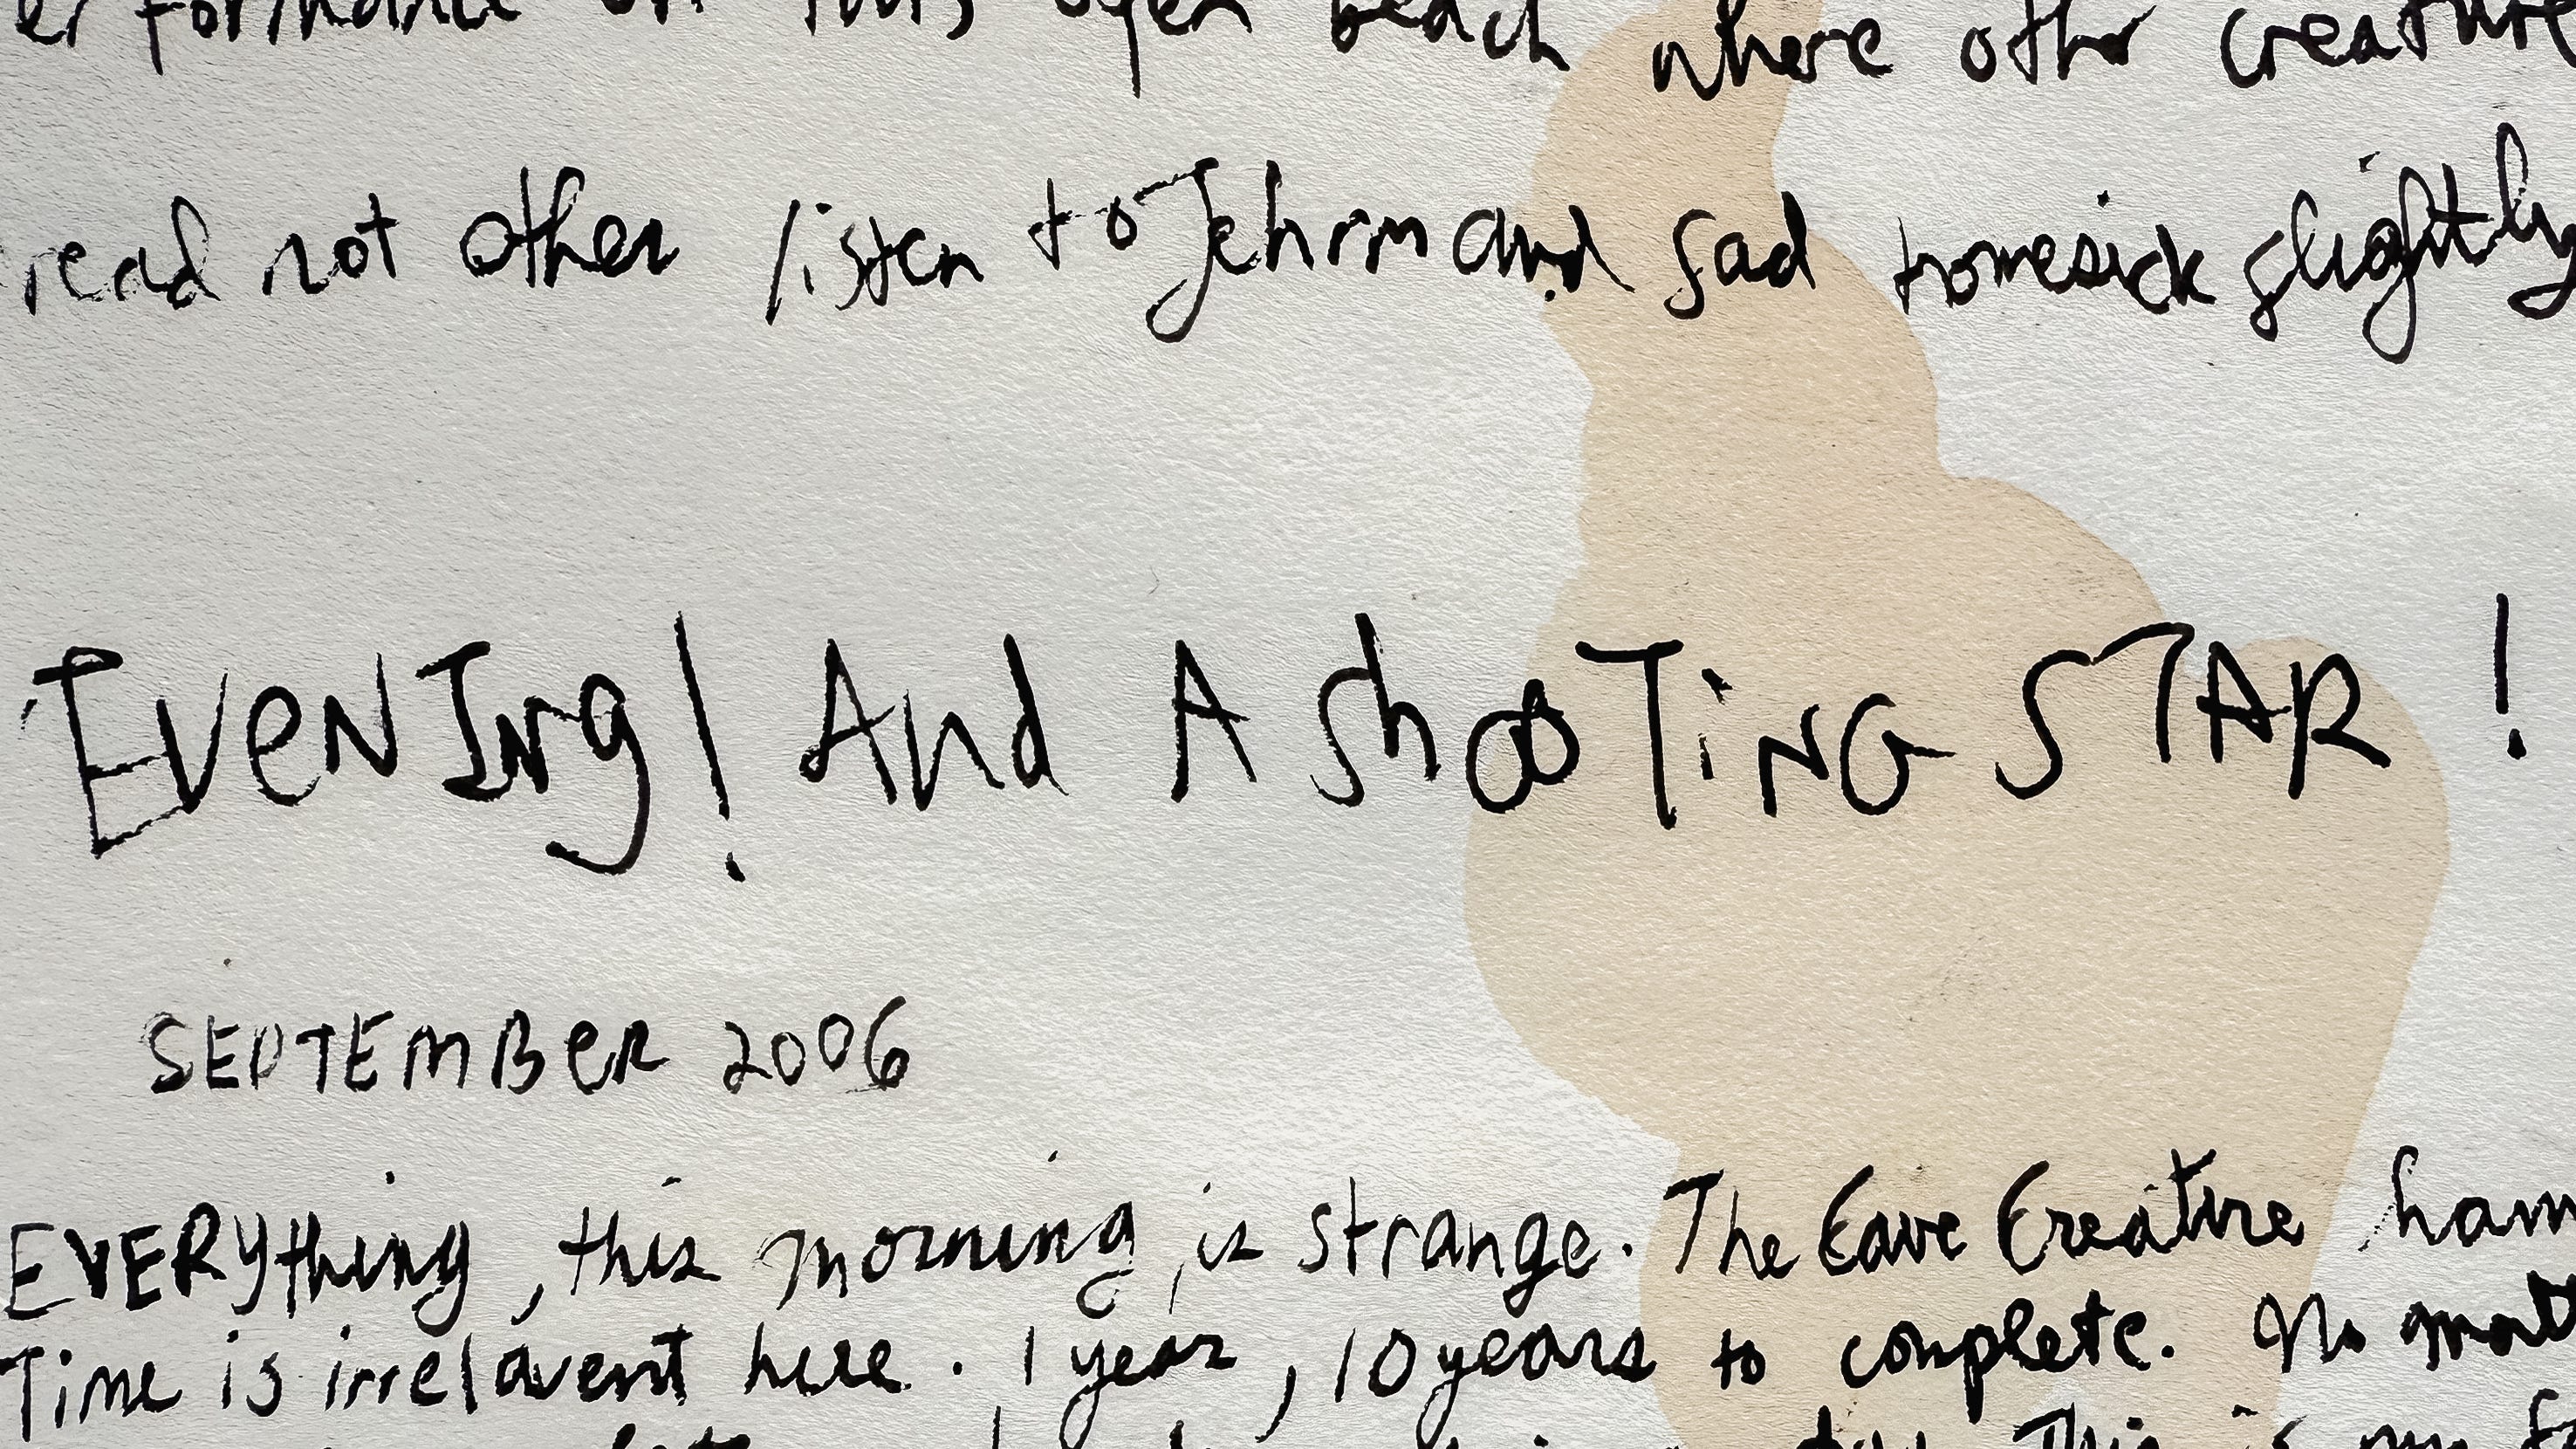 erformance on this open beach where othr creature
read not other listen to Jehrm and sad homesick slightly
EveNINg! And A ShooTiNG STAR !
SEPTEMBER 2006
EVERYthing, this morning, is strange. The Cave Creature ham
Time is irrelavent here. 1 year, 10 years to complete. No matt
This is my f